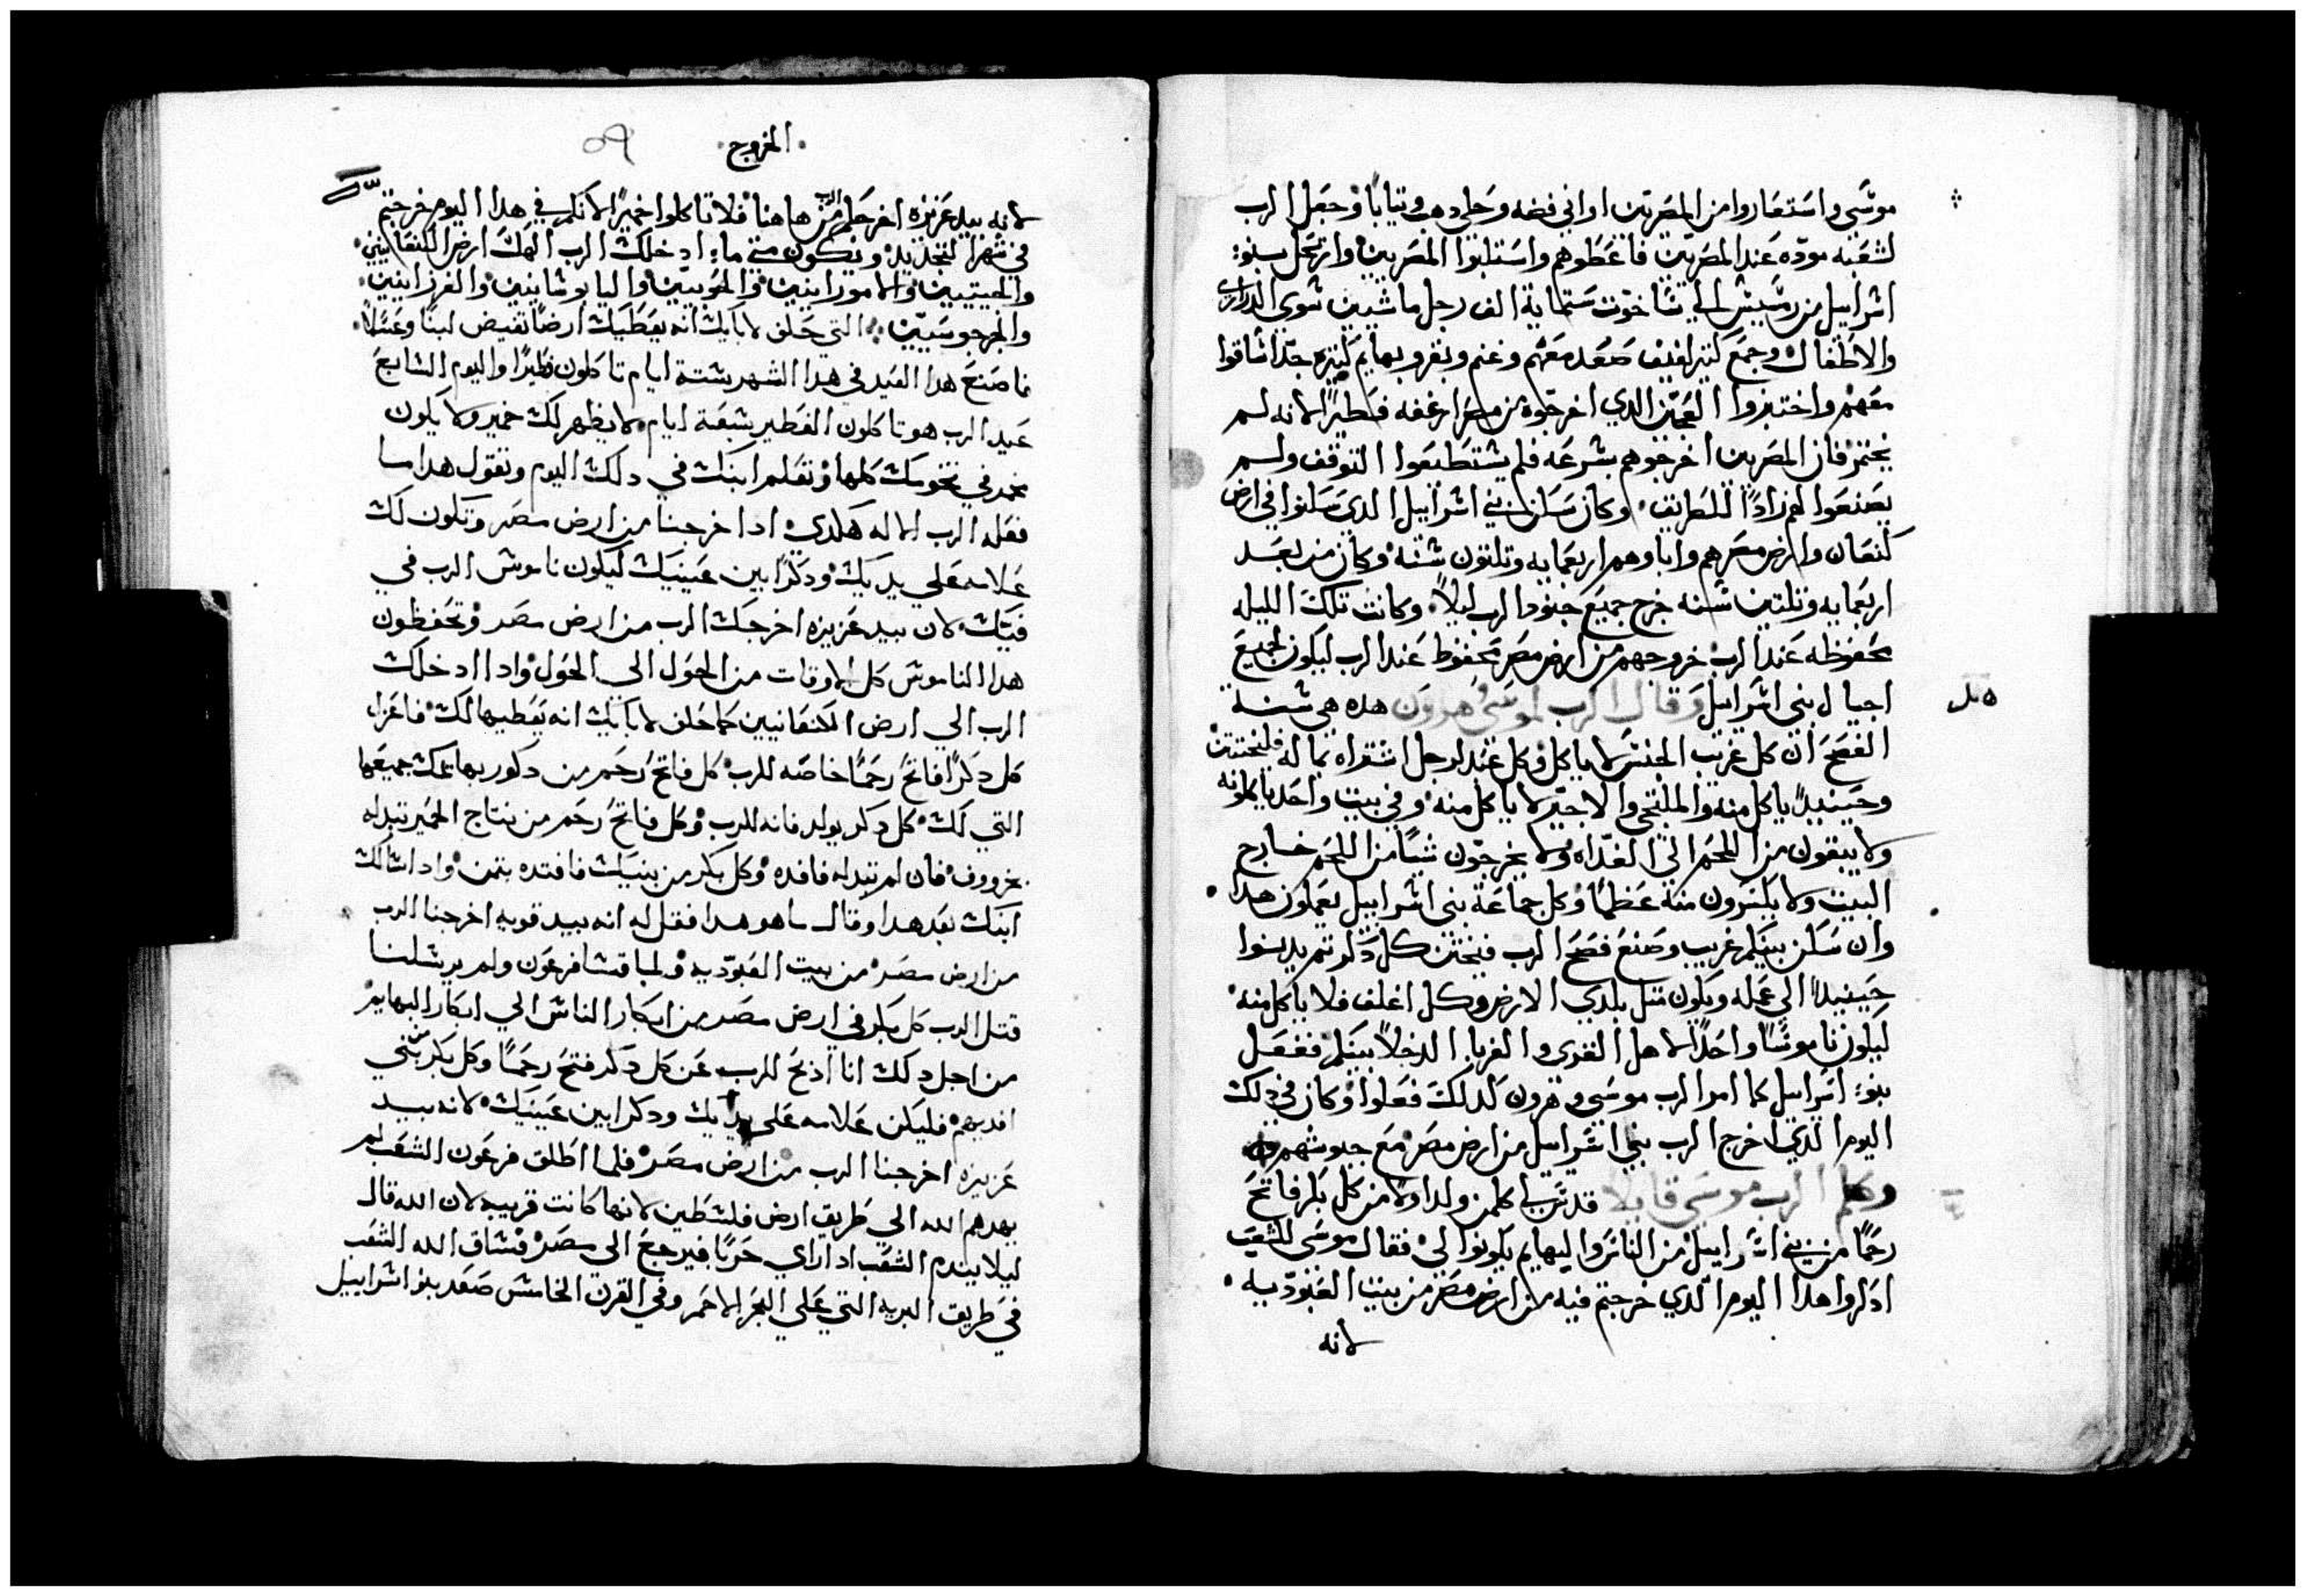 موسى واستعاروا من المصريين اواني فضه وحلي دهب وتيابا وجعل الرب
لشعبه موده عند المصريين فاعطوهم واستلبوا المصريين وارتحل بنو
اشراييل من رعمسيس الى شاخوت ستماية الف رجل ماشيين سوى الدراري
والاطفال وجمع كتير لفيف صعد معهم وغنم وبقر وبهايم كتيره جدا شاقوا
معهم واختبزوا العجين الدي اخرجوه من مصر ارغفه فطيرا لانه لم
يختمر فان المصريين اخرجوهم بشرعه فلم يشتطيعوا التوقف ولم
يصنعوا لهم زادا للطريق وكان سكن بني اشراييل الدي سكنوا في ارض
كنعان وارض مصر هم واباوهم اربعمايه وتلتون سنه وكان من بعد
اربعمايه وتلتين سنه خرج جميع جنود الرب ليلا وكانت تلك الليله
محفوظه عند الرب خروجهم من ارض مصر محفوظ عند الرب ليكون لجميع
اجيال بني اشراييل وقال الرب لموسى وهرون هده هي شنة
الفصح ان كل غريب الجنس لا ياكل وكل عبد لرجل اشتراه بماله فليختتن
وحينيد ياكل منه والملتجي والاجير لا ياكل منه وفي بيت واحد ياكلونه
ولا يبقون من اللحم الى الغداه ولا يخرجون شيا من اللحم خارج
البيت ولا يكسرون منه عظما وكل جماعة بني اشراييل يعملون هدا
وان سكن بينكم غريب وصنع فصح الرب فيختن كل دكر تم يدنوا
حينيد الى عمله ويكون متل بلدي الارض وكل اغلف فلا ياكل منه
ليكون ناموسا واحدا لاهل القرى والغربا الدخلا بينكم ففعل
بنو اشراييل كما امر الرب موسى وهرون كدلك فعلوا وكان في دلك
اليوم الدي اخرج الرب بني اشراييل من ارض مصر مع جيوشهم
وكلم الرب موسى قايلا قدس لي كلمن ولد اولا من كل بكر فاتح
رحما من بني اشراييل من الناس والبهايم يكونوا لي فقال موسى للشعب
ادكروا هدا اليوم الدي خرجتم فيه من ارض مصر من بيت العبوديه
لانه
الخروج
لانه بيد عزيزه اخرجكم الرب من هاهنا فلا تاكلوا خميرا لانكم في هدا اليوم خرجتم
في شهر التجديد ويكون متى ما ادخلك الرب الهك ارض الكنعانيين
والحيتيين والامورانيين والحويين واليابوشانيين والفرزانيين
والجرجوسيين التي حلف لابايك انه يعطيك ارضا تفيض لبنا وعسلا
فاصنع هدا العيد في هدا الشهر شتة ايام تاكلون فطيرا واليوم الشابع
عيد الرب هو تاكلون الفطير شبعة ايام لا يظهر لك خمير ولا يكون
في تخومك كلها وتعلم ابنك في دلك اليوم وتقول هدا ما
فعله الرب الاله هكدى ادا خرجنا من ارض مصر وتكون لك
علامه على يديك ودكرا بين عينيك ليكون ناموش الرب في
فيك لان بيد عزيزه اخرجك الرب من ارض مصر وتحفظون
هدا الناموش كل الاوقات من الحول الى الحول وادا ادخلك
الرب الى ارض الكنعانيين كما حلف لابايك انه يعطيها لك فاعزل
كل دكرا فاتح رحما خاصه للرب كل فاتح رحم من دكور بهايمك جميعها
التي لك كل دكر يولد فانه للرب وكل فاتح رحم من نتاج الحمير تبدله
بخروف فان لم تبدله فافده وكل بكر من بنيك فافتده بتمن وادا شالك
ابنك بعد هدا وقال ما هو هدا فقل له انه بيد قويه اخرجنا الرب
من ارض مصر من بيت العبوديه ولما قشا فرعون ولم يرشلنا
قتل الرب كل بكر في ارض مصر من ابكار الناش الى ابكار البهايم
من اجل دلك انا ادبح للرب عن كل دكر فتح رحما وكل بكر من بني
افديهم فليكن علامه على يديك ودكرا بين عينيك لانه بيد
عزيزه اخرجنا الرب من ارض مصر فلما اطلق فرعون الشعب لم
يهدهم الله الى طريق ارض فلشطين لانها كانت قريبه لان الله قال
ليلا يندم الشعب ادا راي حربا فيرجع الى مصر فشاق الله الشعب
في طريق البريه التي على البحر الاحمر وفي القرن الخامش صعد بنو اشراييل